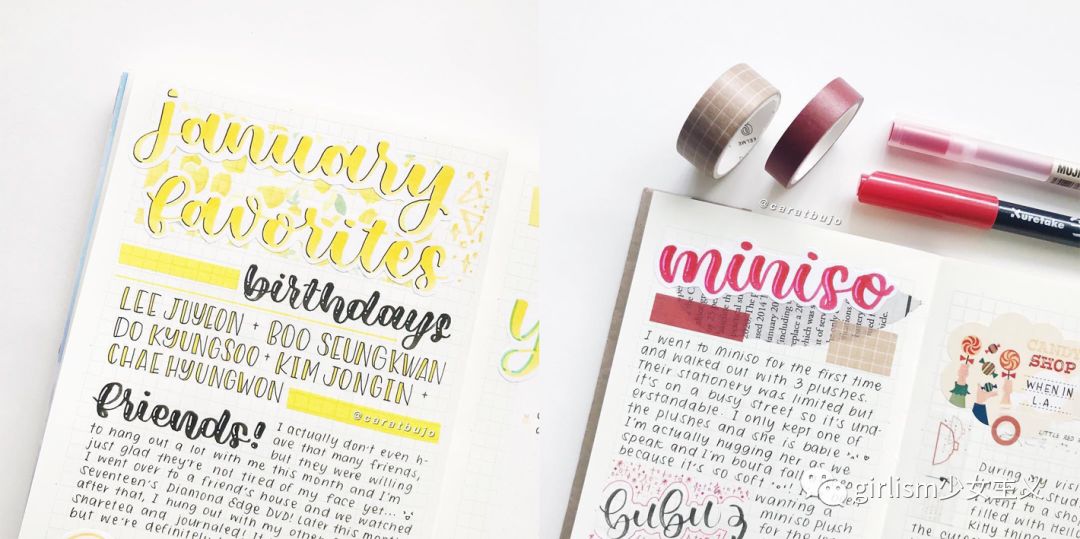 january
favorites
birthdays
LEE JUYEON + BOO SEUNGKWAN
DO KYUNGSOO + KIM JONGIN +
CHAE HYUNGWON
@caratbujo
friends!
I actually don't even h-
ave that many friends,
but they were willing
to hang out a lot with me this month and I'm
just glad they're not tired of my face yet...
I went over to a friend's house and we watched
seventeen's Diamond Edge DVD! Later this month
after that, I hung out with my other
sharetea and journaled!
but we're definitely
KELME
MUJI
Kuretake
@caratbujo
miniso
I went to miniso for the first time
and walked out with 3 plushes.
Their stationery was limited but
it's on a busy street so it's und-
erstandable. I only kept one of
the plushes and she is babie
I'm actually hugging her as we
speak and I'm bouta fall
because it's so soft
bubu
wanting a
miniso plush
for the
CANDY
SHOP
WHEN IN
L.A...
LITTLE RED
During my visi
went to a sho
filled with Hello
Kitty things
the
girlism少女主义